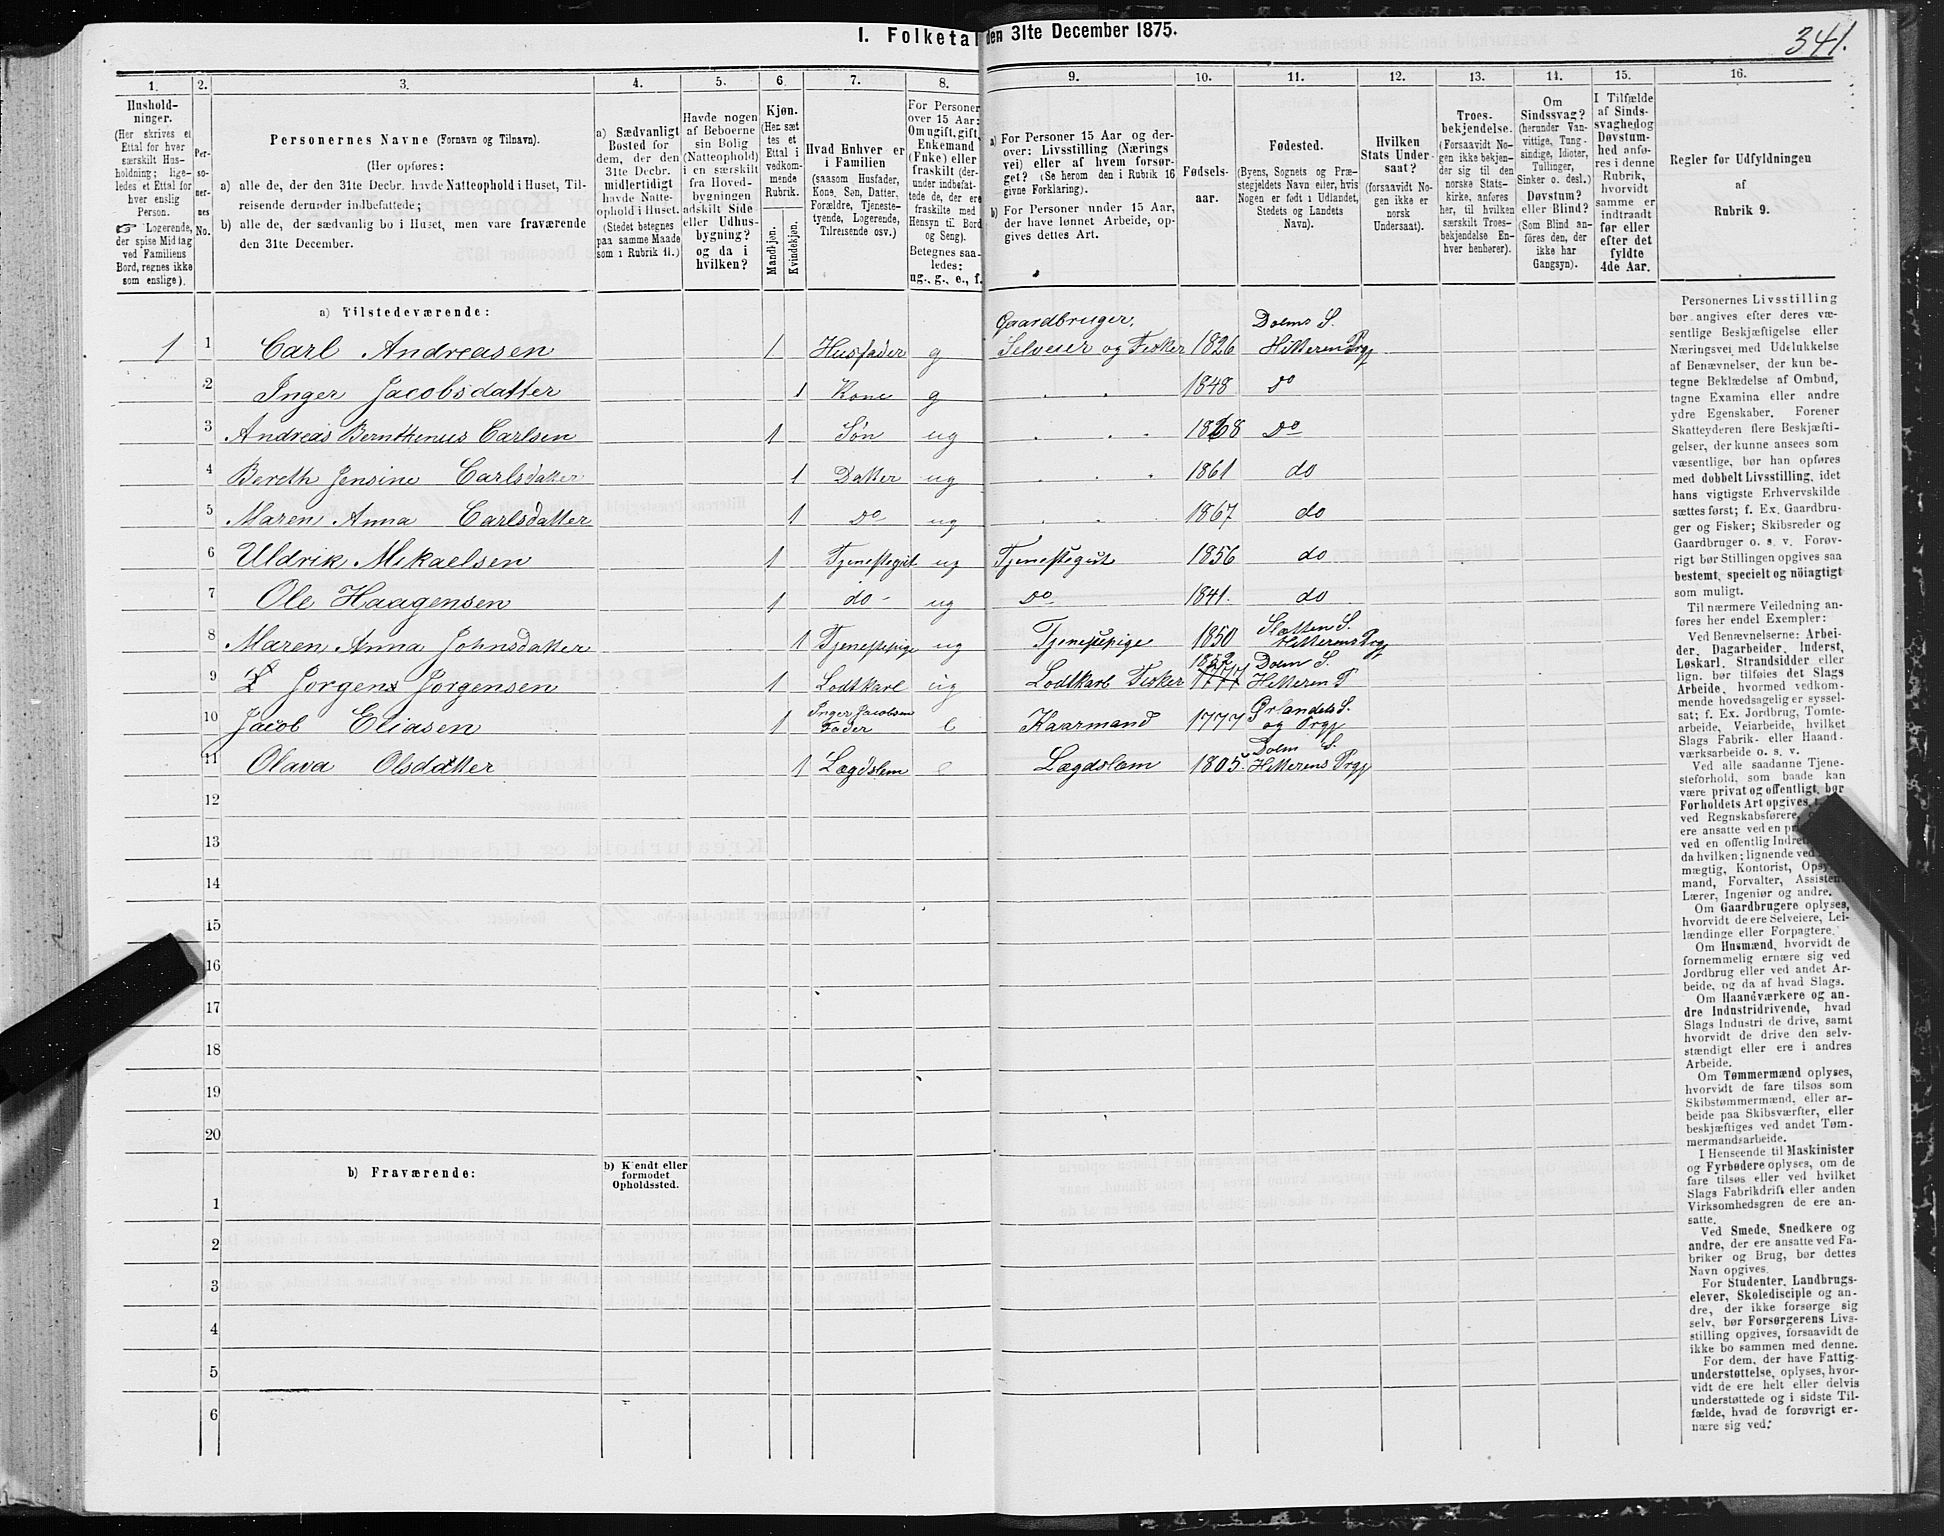 I. Folketal den 31te December 1875.
341.
1.
2.
3.
4.
5.
6.
7.
8.
9.
10.
11.
12.
13.
14.
15.
16.
Hushold-
ninger.
(Her skrives et
Ettal for hver
særskilt Hus-
holdning; lige-
ledes et Ettal for
hver enslig
Person.
☞ Logerende,
der spise Middag
ved Familiens
Bord, regnes ikke
som enslige).
Per-
so-
ner-
nes
No.
Personernes Navne (Fornavn og Tilnavn).
(Her opføres:
a) alle de, der den 31te Decbr. havde Natteophold i Huset, Til-
reisende derunder indbefattede;
b) alle de, der sædvanlig bo i Huset, men vare fraværende
den 31te December.
a) Sædvanligt
Bosted for
dem, der den
31te Decbr.
midlertidigt
havde Natte-
ophold i Huset.
(Stedet betegnes
paa samme Maade
som i Rubrik 11.)
Havde nogen
af Beboerne
sin Bolig
(Natteophold)
i en særskilt
fra Hoved-
bygningen
adskilt Side-
eller Udhus-
bygning?
og da i
hvilken?
Kjøn.
(Her sæt-
tes et
Ettal i
vedkom-
mende
Rubrik.
Mandkjøn.
Kvindekjøn.
Hvad Enhver er
i Familien
(saasom Husfader,
Kone, Søn, Datter,
Forældre, Tjeneste-
tyende, Logerende,
Tilreisende osv.)
For Personer
over 15 Aar:
Om ugift, gift,
Enkemand
(Enke) eller
fraskilt (der-
under indbefat-
tede de, der ere
fraskilte med
Hensyn til Bord
og Seng).
Betegnes saa-
ledes:
ug., g., e., f.
a) For Personer 15 Aar og der-
over: Livsstilling (Nærings
vei) eller af hvem forsør-
get? (Se herom den i Rubrik 16
givne Forklaring).
b) For Personer under 15 Aar,
der have lønnet Arbeide, op-
gives dettes Art.
Fødsels-
aar.
Fødested.
(Byens, Sognets og Præ-
stegjeldets Navn eller, hvis
Nogen er født i Udlandet,
Stedets og Landets
Navn).
Hvilken
Stats Under-
saat?
(forsaavidt No-
gen ikke er
norsk
Undersaat).
Troes-
bekjendelse.
(Forsaavidt No-
gen ikke bekjen-
der sig til den
norske Stats-
kirke, anføres
her, til hvilken
særskilt Troes-
bekjendelse En-
hver henhører).
Om
Sindssvag?
(herunder Van-
vittige, Tung-
sindige, Idioter,
Tullinger,
Sinker o. desl.)
Døvstum?
eller Blind?
(Som Blind an-
føres den, der
ikke har
Gangsyn).
I Tilfælde
af Sinds-
svaghed og
Døvstum-
hed anfø-
res i denne
Rubrik,
hvorvidt
samme er
indtraadt
før eller
efter det
fyldte
4de Aar.
Regler for Udfyldningen
af
Rubrik 9.
a) Tilstedeværende:
1 1 Carl Andreasen 1 Husfader g Gaardbruger, Selveier og Fisker 1826 Dolms S. Hitteren Prgj
2 Inger Jacobsdatter 1 Kone g " " 1848 do
3 Andreas Bernttenus Carlsen 1 Søn ug " " " 1868 do
4 Bereth Jensine Carlsdatter 1 Datter ug " " " 1861 do
5 Maren Anna Carlsdatter 1 do ug " " 1867 do
6 Uldrik Mikaelsen 1 Tjenestegut ug Tjenestegut 1856 do
7 Ole Haagensen 1 do ug do 1841. do
8 Maren Anna Johnsdatter 1 Tjenestepige ug Tjenestepige 1850 Sletten S. Hitterens Prgj
9 Jørgen Jørgensen 1 Lodtkarl ug Lodtkarl Fisker 1852 1777 Dolm S. Hitteren P
10 Jacob Eliasen 1 Inger Jacobsen Fader e Kaarmand 1777 Ørlandets S. og Prgj
11 Olava Olsdatter 1 Lægdslem e Lægdslem 1805. Dolm S. Hitterens Prgj
12
13
14
15
16
17
18
19
20
b) Fraværende:
b) Kjendt eller
formodet
Opholdssted.
1
2
3
4
5
6
Personernes Livsstilling
bør angives efter deres væ-
sentlige Beskjæftigelse eller
Næringsvei med Udelukkelse
af Benævnelser, der kun be-
tegne Beklædelse af Ombud,
tagne Examina eller andre
ydre Egenskaber. Forener
Skatteyderen flere Beskjæfti-
gelser, der kunne ansees som
væsentlige, bør han opføres
med dobbelt Livsstilling, idet
hans vigtigste Erhvervskilde
sættes først; f. Ex. Gaardbru-
ger og Fisker; Skibsreder og
Gaardbruger o. s. v. Forøv-
rigt bør Stillingen opgives saa
bestemt, specielt og nöiagtigt
som muligt.
Til nærmere Veiledning an-
føres her endel Exempler:
Ved Benævnelserne: Arbei-
der, Dagarbeider, Inderst,
Løskarl, Strandsidder eller
lign. bør tilføies det Slags
Arbeide, hvormed vedkom-
mende hovedsagelig er syssel-
sat; f. Ex. Jordbrug, Tomte-
arbeide, Veiarbeide, hvilket
Slags Fabrik- eller Haand-
værksarbeide o. s. v.
Ved alle saadanne Tjene-
steforhold, som baade kan
være privat og offentligt, bør
Forholdets Art opgives,
ved Regnskabsførere,
ere ansatte ved en
ved en offentlig
da hvilken; lignende ved
mægtig, Kontorist,
mand, Forvalter,
Lærer, Ingeniør og andre.
Om Gaardbrugere oplyses,
hvorvidt de ere Selveiere, Lei-
lændinge eller Forpagtere.
Om Husmænd, hvorvidt de
fornemmelig ernære sig ved
Jordbrug eller ved andet Ar-
beide, og da af hvad Slags.
Om Haandværkere og an-
dre Industridrivende, hvad
Slags Industri de drive, samt
hvorvidt de drive den selv-
stændigt eller ere i andres
Arbeide.
Om Tømmermænd oplyses,
hvorvidt de fare tilsøs som
Skibstømmermænd, eller ar-
beide paa Skibsværfter, eller
beskjæftiges ved andet Tøm-
mermandsarbeide.
I Henseende til Maskinister
og Fyrbødere oplyses, om de
fare tilsøs eller ved hvilket
Slags Fabrikdrift eller anden
Virksomhedsgren de ere an-
satte.
Ved Smede, Snedkere og
andre, der ere ansatte ved Fa-
briker og Brug, bør dettes
Navn opgives.
For Studenter, Landbrugs-
elever, Skoledisciple og an-
dre, der ikke forsørge sig
selv, bør Forsørgerens Livs-
stilling opgives, forsaavidt de
ikke bo sammen med denne.
For dem, der have Fattig-
understøttelse, oplyses, hvor-
vidt de ere helt eller delvis
understøttede og i sidste Til-
fælde, hvad de forøvrigt er-
nære sig ved.